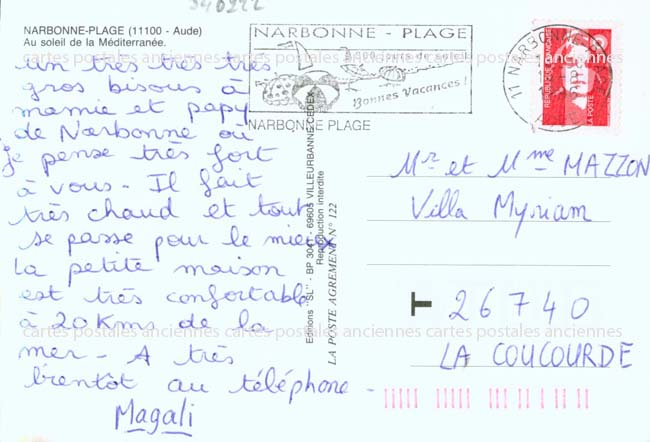 340222
NARBONNE-PLAGE (11100 - Aude)
Au soleil de la Méditerranée.
un très très très
gros bisous à
mamie et papy
de Narbonne où
je pense très fort
à vous - Il fait
très chaud et tout
se passe pour le mieux
la petite maison
est très confortable
à 20 Kms de la
mer - A très
bientôt au téléphone -
Magali
NARBONNE - PLAGE
Bonnes Vacances !
NARBONNE PLAGE
11 NARBONNE
REPUBLIQUE FRANCAISE
LA POSTE
Editions "SL" - BP 3041 - 69605 VILLEURBANNE CEDEX
Reproduction interdite
LA POSTE AGREMENT N° 122
Mr et Mme MAZZON
Villa Myriam
T 26740
LA COUCOURDE
cartes postales anciennes cartes postales anciennes cartes postales anciennes
cartes postales anciennes cartes postales anciennes cartes postales anciennes